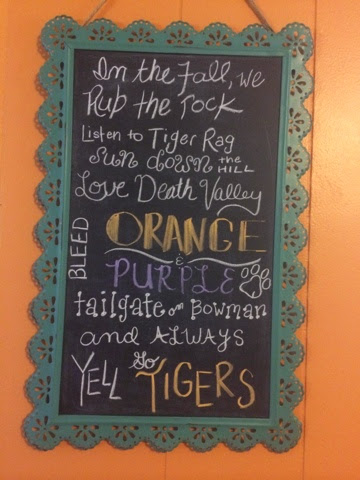 In the Fall, we
Rub the rock
Listen to Tiger Rag
run down the HILL
Love Death Valley
BLEED ORANGE
&
PURPLE
tailgate on Bowman
and ALWAYS
YELL Go TIGERS